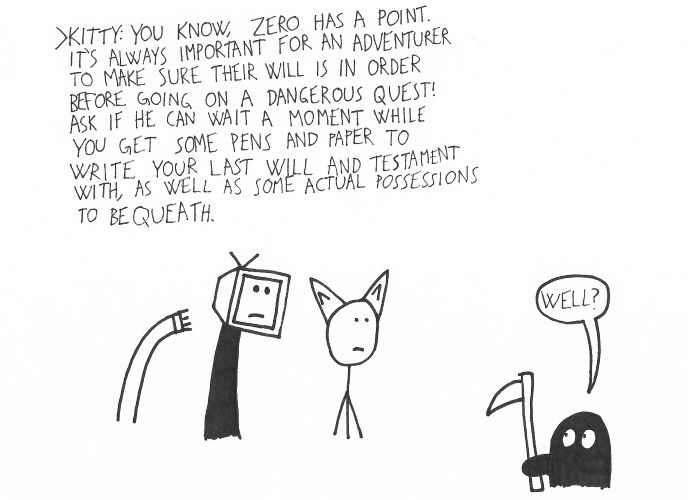 >KITTY: YOU KNOW, ZERO HAS A POINT.
IT'S ALWAYS IMPORTANT FOR AN ADVENTURER
TO MAKE SURE THEIR WILL IS IN ORDER
BEFORE GOING ON A DANGEROUS QUEST!
ASK IF HE CAN WAIT A MOMENT WHILE
YOU GET SOME PENS AND PAPER TO
WRITE YOUR LAST WILL AND TESTAMENT
WITH, AS WELL AS SOME ACTUAL POSSESSIONS
TO BEQUEATH.
WELL?